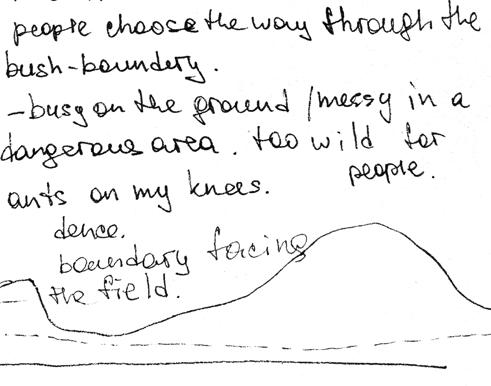 people choose the way through the
bush-boundery.
-busy on the ground /messy in a
dangerous area. too wild for
people.
ants on my knees.
dence.
boundary facing
the field.